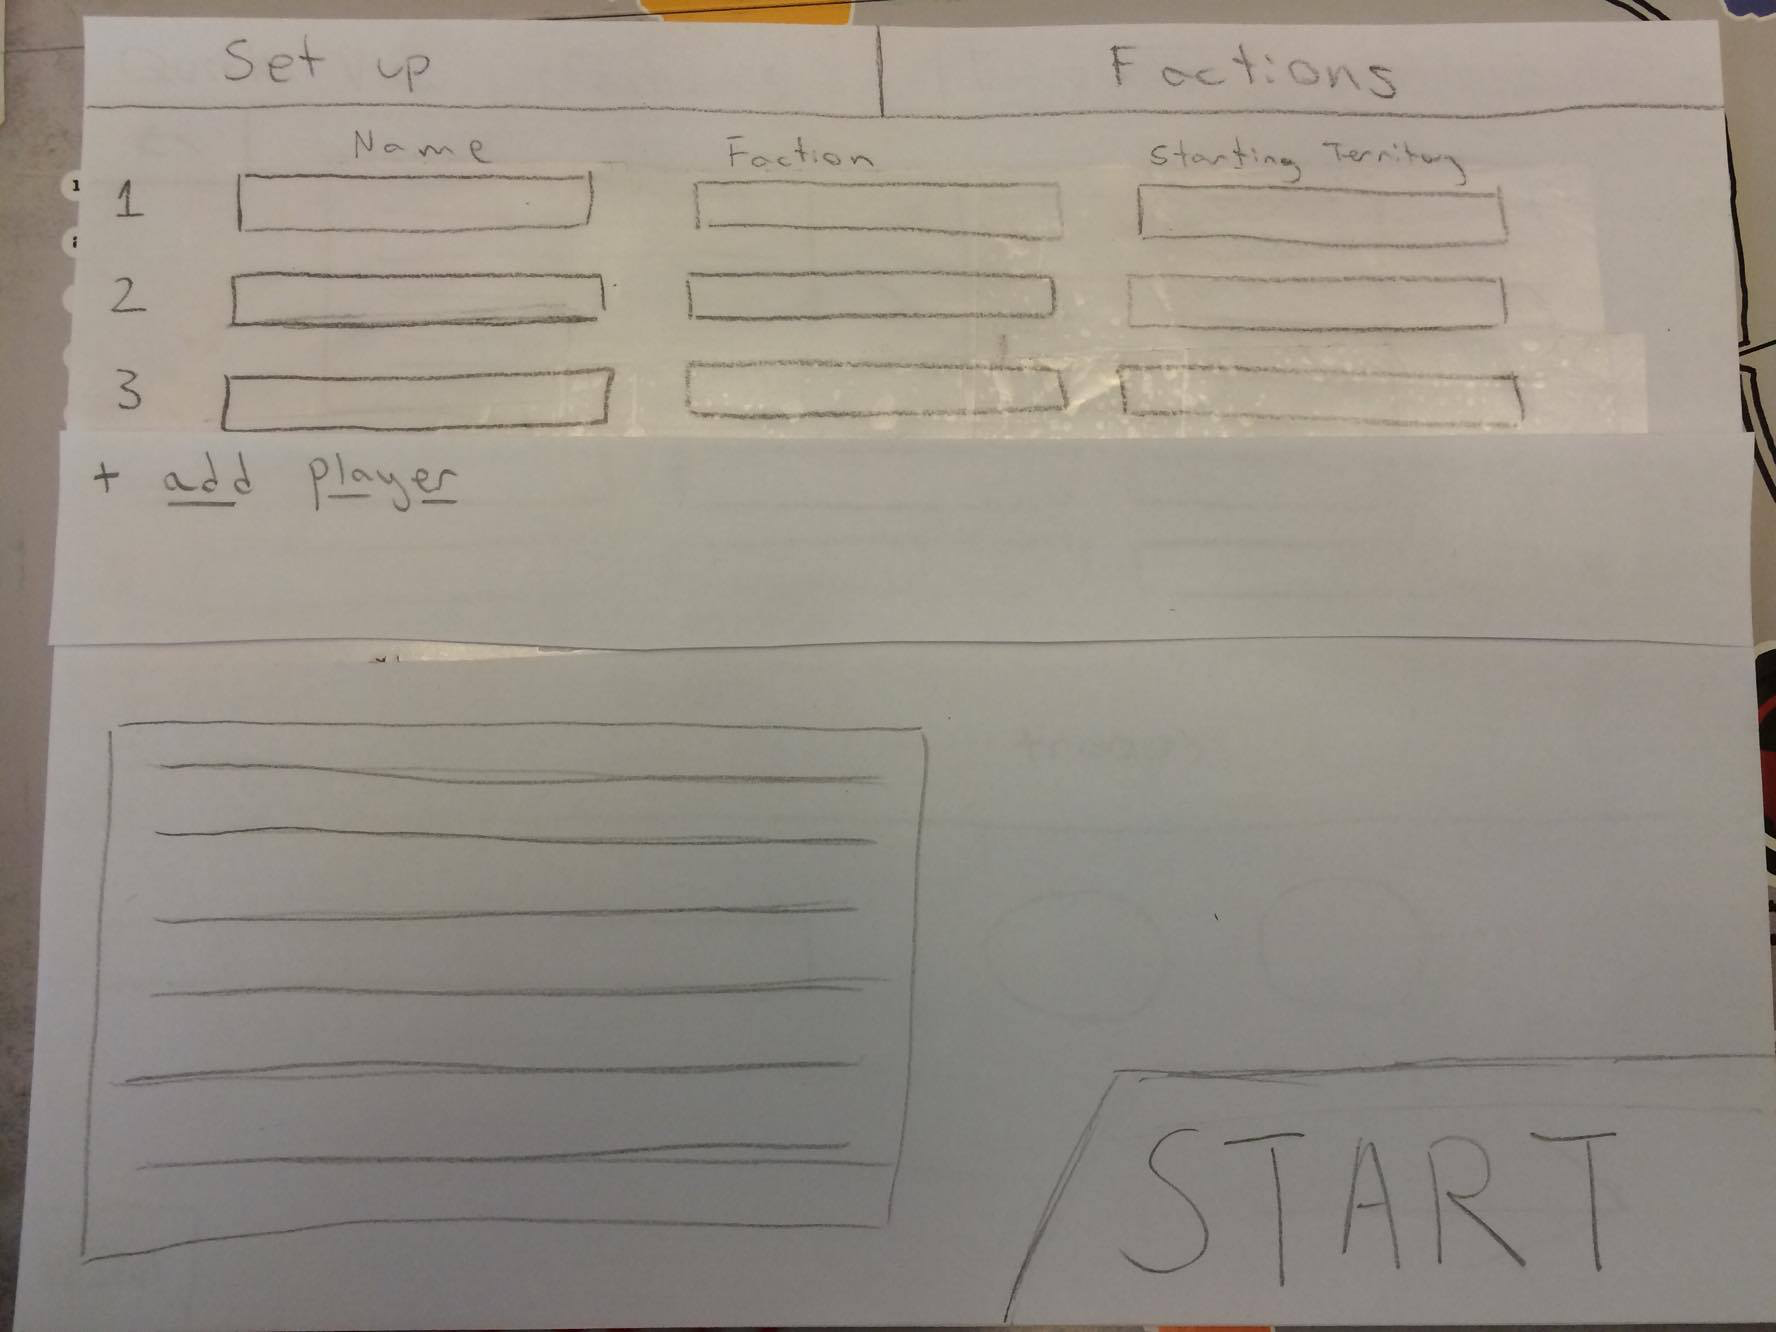 Set up Factions
Name Faction Starting Territory
1
2
3
+ add player
START